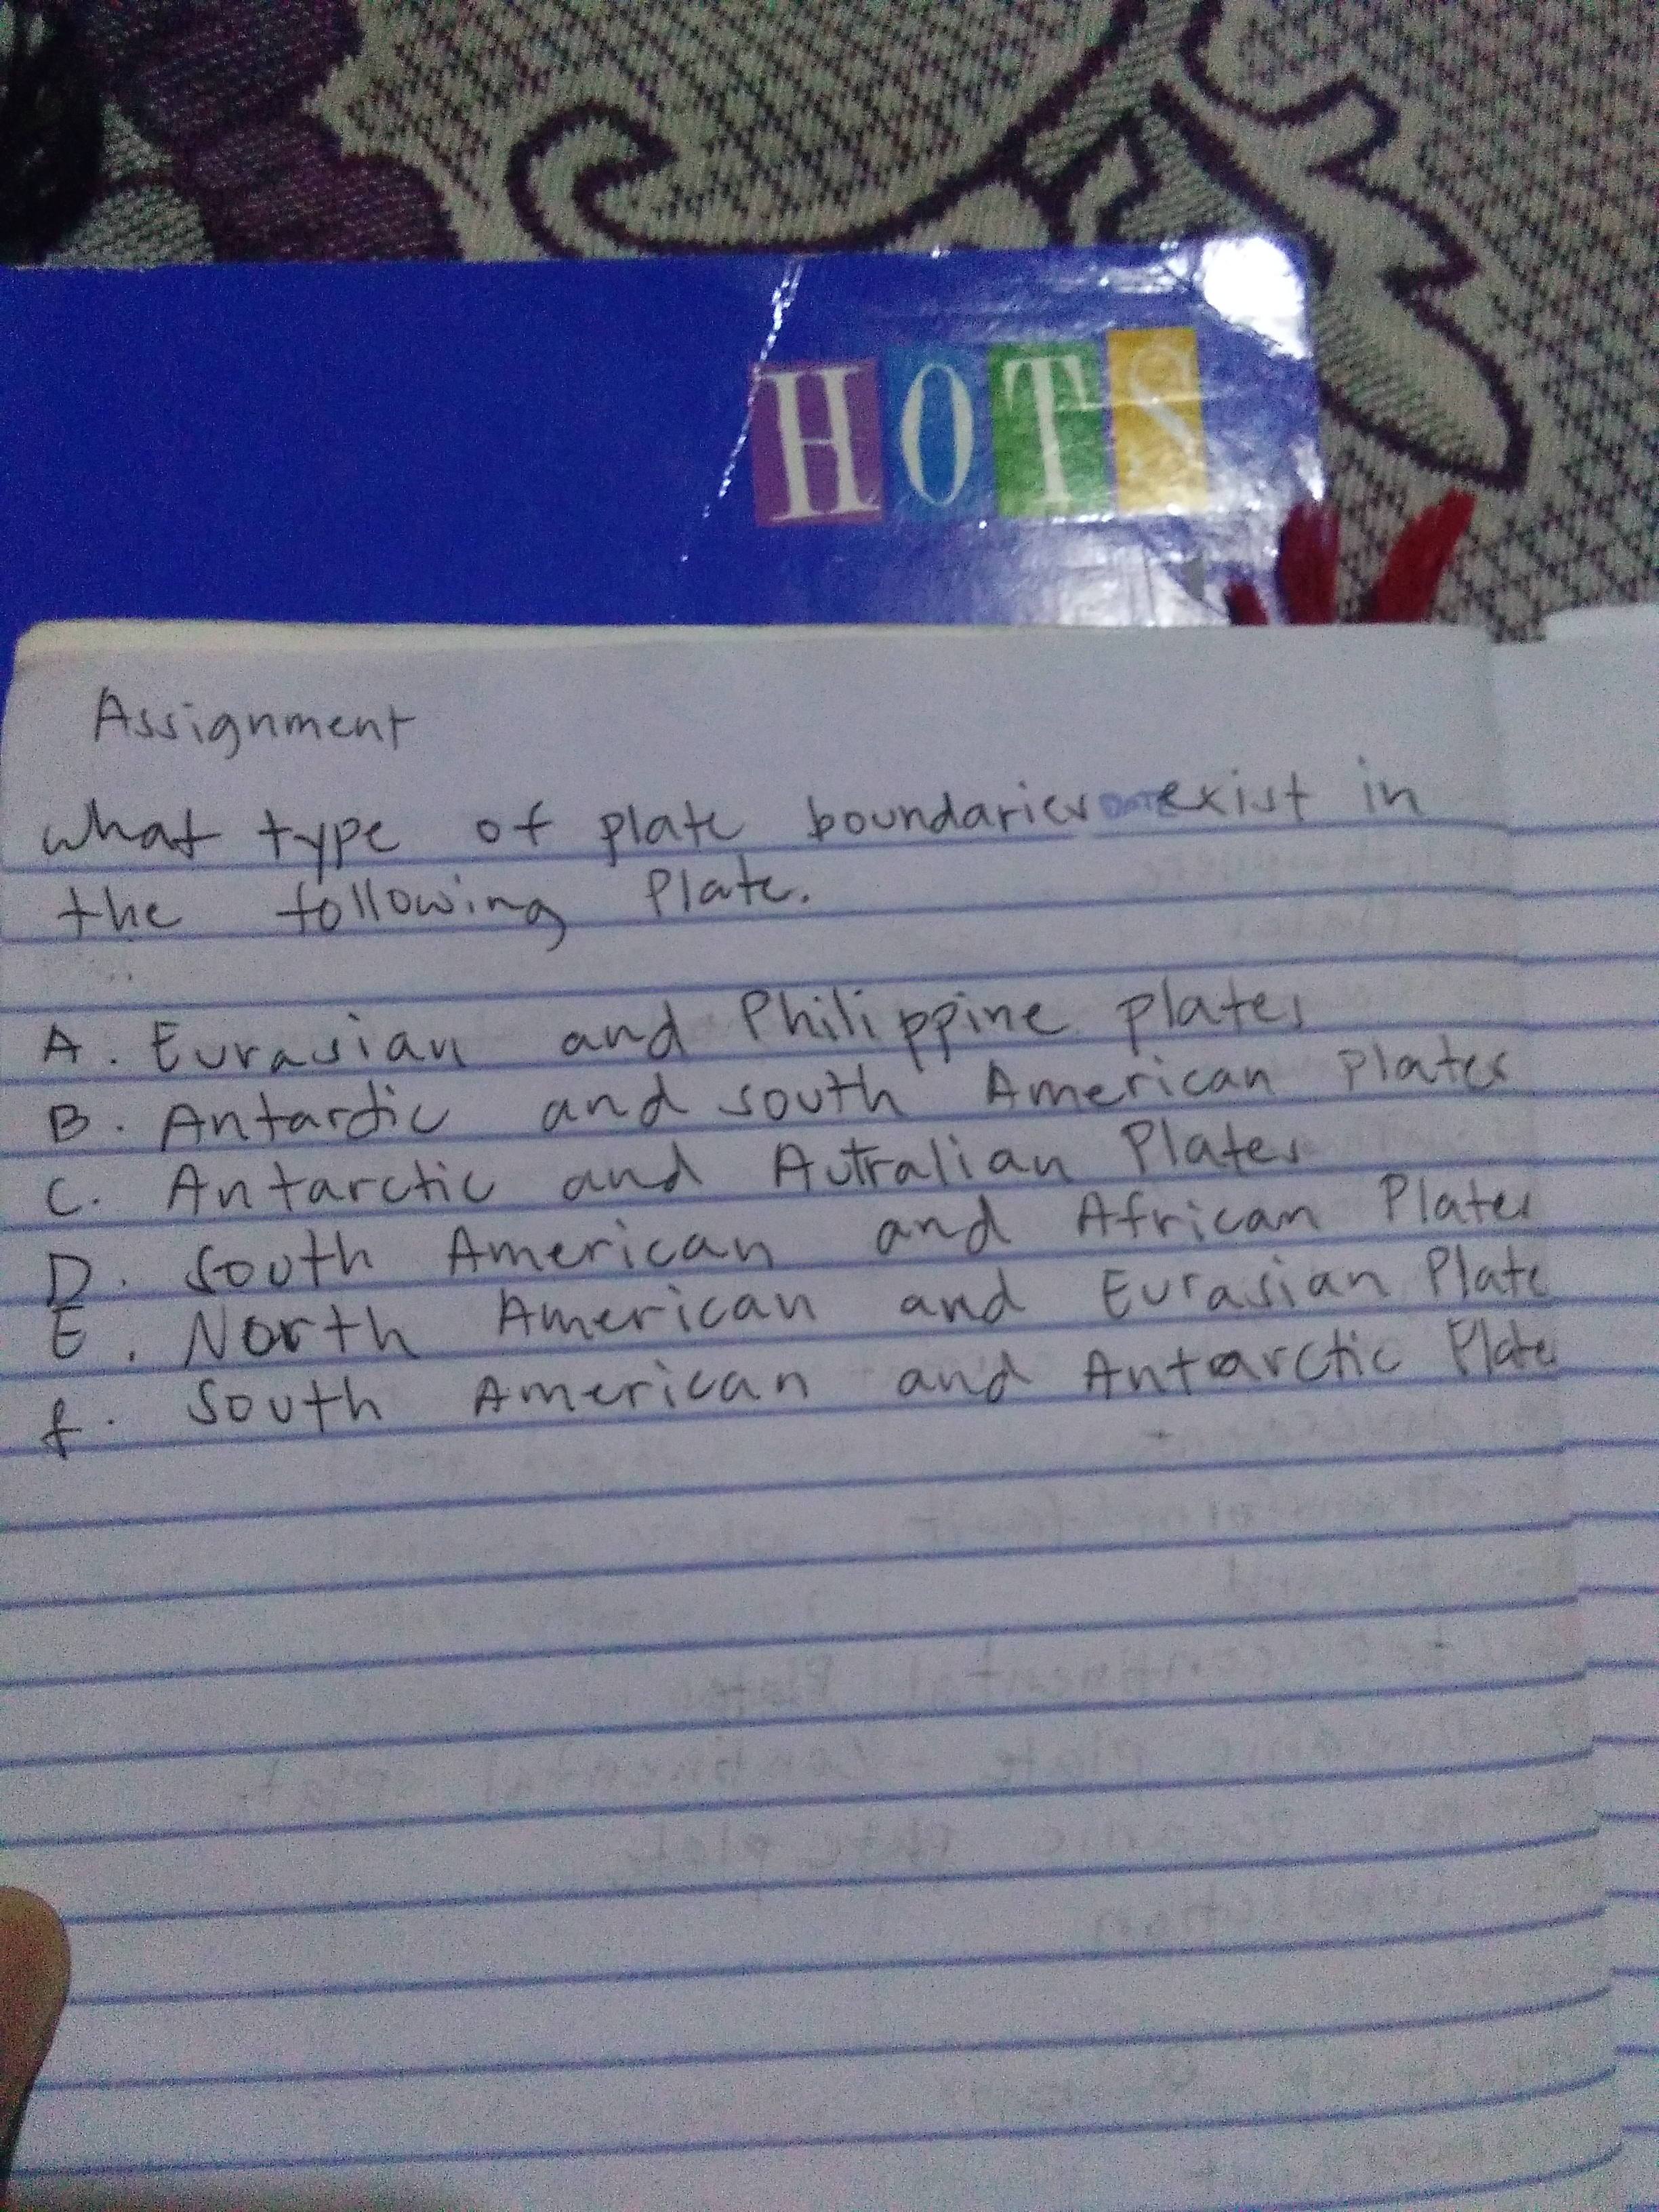 HOTS
Assignment
what type of plate boundaries exist in
the following Plate.
A. Eurasian and Philippine plates
B. Antardic and south American plates
C. Antarctic and Autralian Plates
D. South American and African Plates
E. North American and Eurasian Plate
f. South American and Antarctic Plate